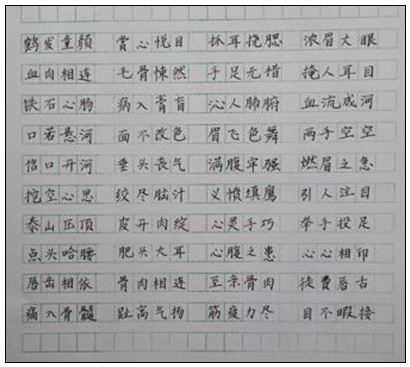 鹤发童颜 赏心悦目 抓耳挠腮 浓眉大眼
血肉相连 毛骨悚然 手足无惜 掩人耳目
铁石心肠 病入膏肓 沁人肺腑 血流成河
口若悬河 面不改色 眉飞色舞 两手空空
信口开河 垂头丧气 满腹牢强 燃眉之急
挖空心思 绞尽脑汁 义愤填鹰 引人注目
泰山压顶 皮开肉绽 心灵手巧 举手投足
点头哈腰 肥头大耳 心腹之患 心心相印
唇齿相依 骨肉相连 至亲骨肉 徒费唇舌
病入骨髓 趾高气扬 筋疲力尽 目不暇接